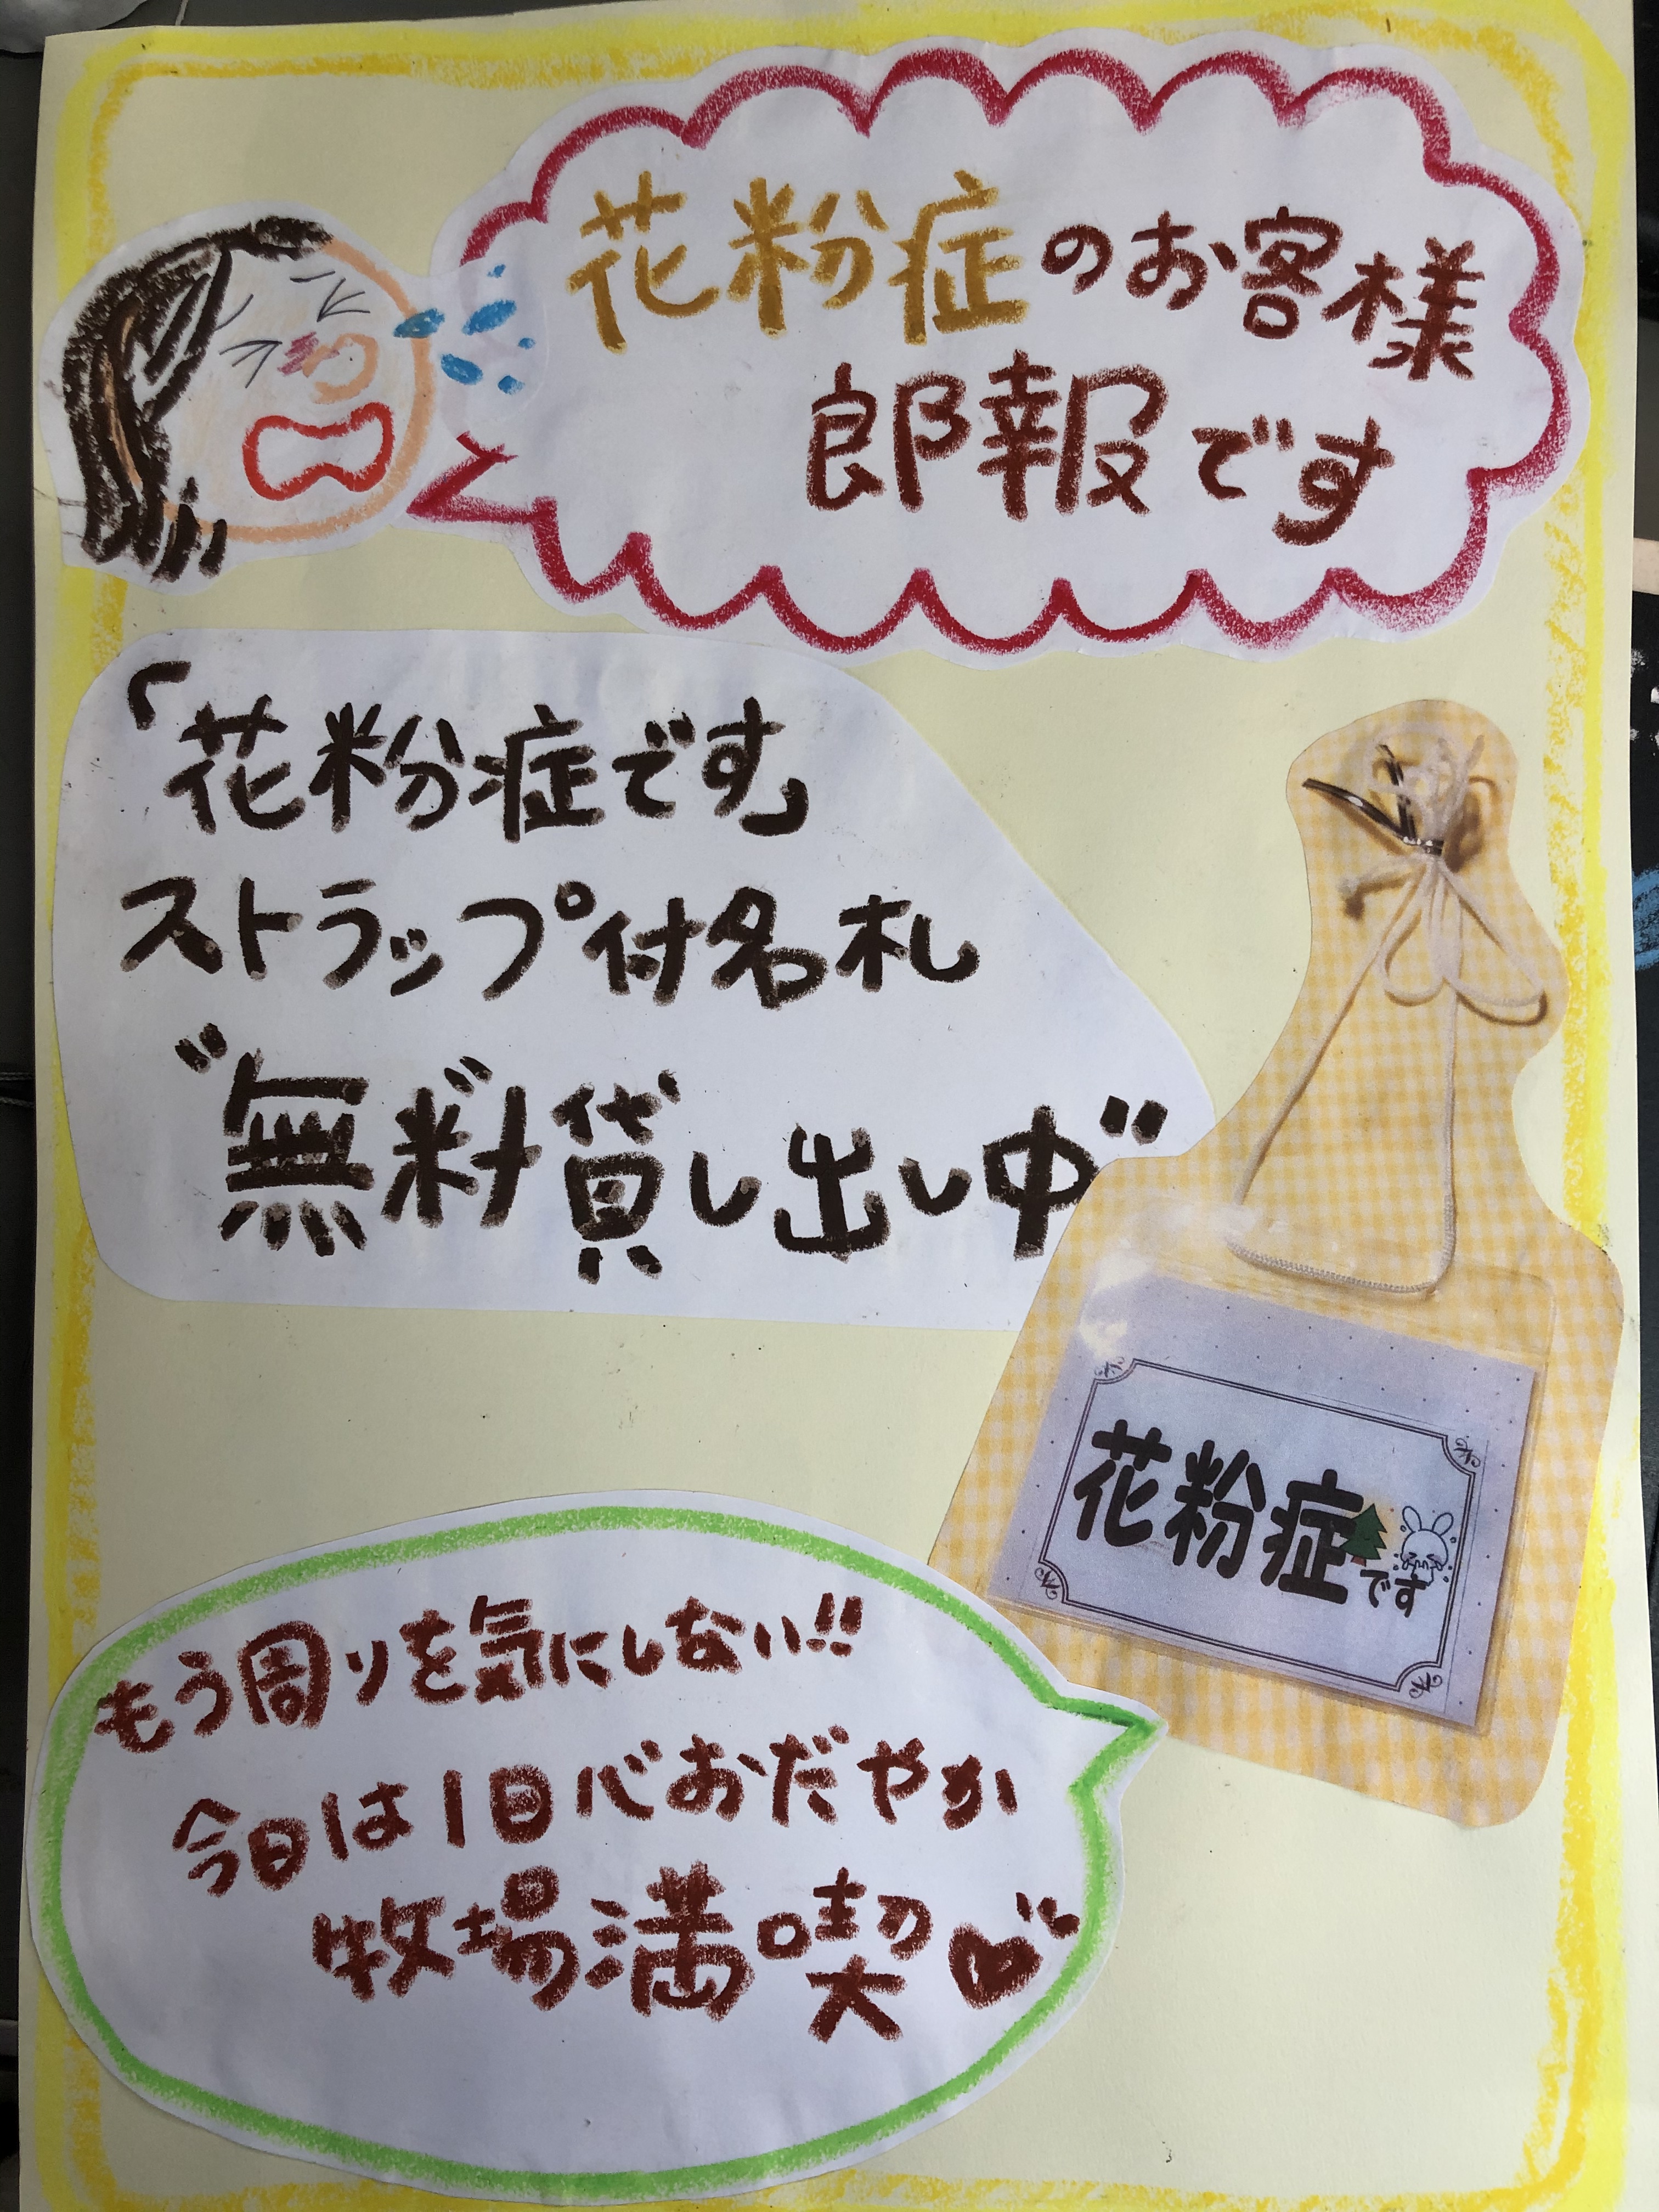 花粉症のお客様
郎報です
「花粉症です」
ストラップ付名札
"無料貸し出し中"
花粉症です
もう周りを気にしない!!
今日は1日心おだやか
牧場満喫